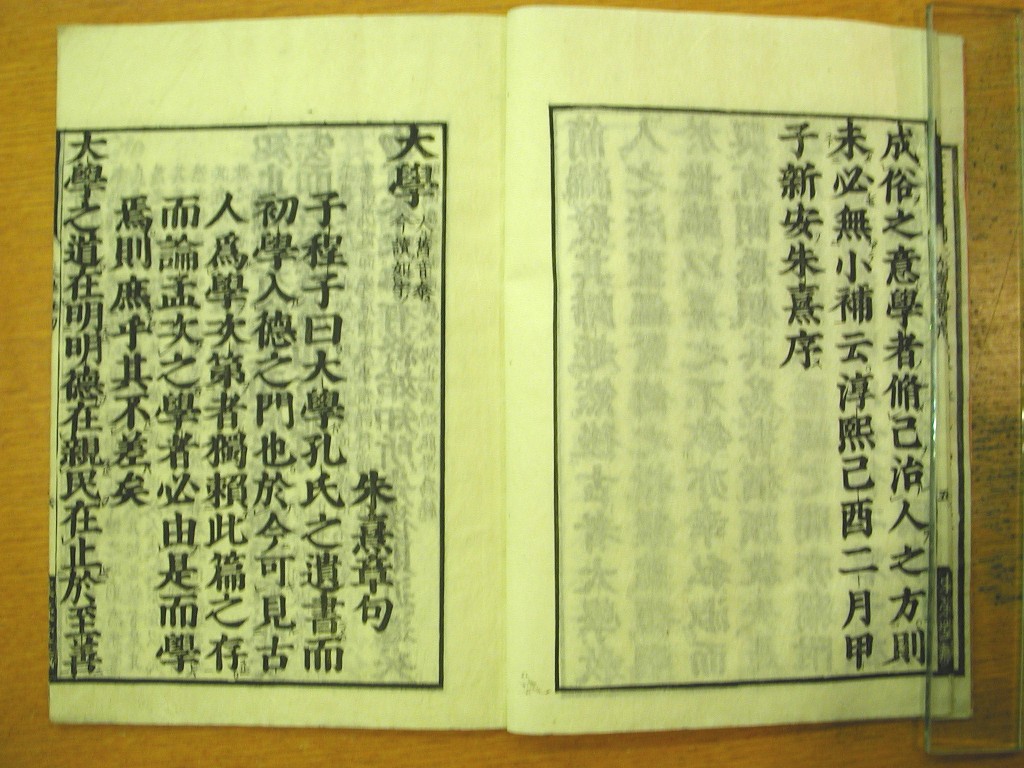 成俗之意學者脩己治人之方則
未必無小補云淳熙己酉二月甲
子新安朱熹序
大學
朱熹章句
子程子曰大學孔氏之遺書而
初學入德之門也於今可見古
人爲學次第者獨賴此篇之存
而論孟次之學者必由是而學
焉則庶乎其不差矣
大學之道在明明德在親民在止於至善